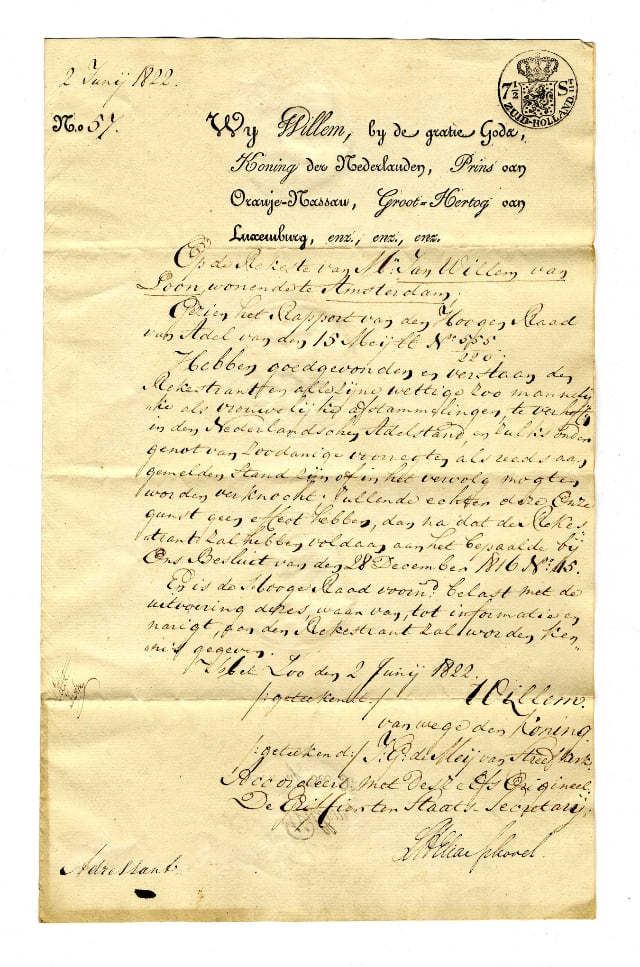 2 Junij 1822.
7½ S
ZUID-HOLLAND
N.o 57.
Wy Willem, by de gratie Gods,
Koning der Nederlanden, Prins van
Oranje-Nassau, Groot-Hertog van
Luxemburg, enz., enz., enz.
Op de Rekeste van Mr. Jan Willem van
Loon, wonende te Amsterdam;
Gezien het Rapport van den Hoogen Raad
van Adel van den 15 Meij ll. No.
Hebben goedgevonden en verstaan den
Rekestrant en alle zijne wettige zoo mannelij-
ke als vrouwelijke afstammelingen, te verheffen
in den Nederlandschen Adelstand en zulks onder
genot van zoodanige voorregten als reeds aan
gemelden stand zijn of in het vervolg mogten
worden verknocht. Zullende echter deze Onze
gunst geen effect hebben, dan na dat de Rekes
trant zal hebben voldaan aan het bepaalde bij
Ons Besluit van den 28 December 1816 No. 45.
En is de Hooge Raad voornd. belast met de
uitvoering dezes, waar van, tot informatie en
narigt, aan den Rekestrant zal worden ken-
nis gegeven.
Het Loo den 2 Junij 1822.
/:geteekend:/ Willem.
van wege den Koning
/:geteekend:/ J. G. de Meij van Streefkerk
Accordeert met deszelfs Origineel.
De Griffier ter Staats Secretarij.
Adressant.